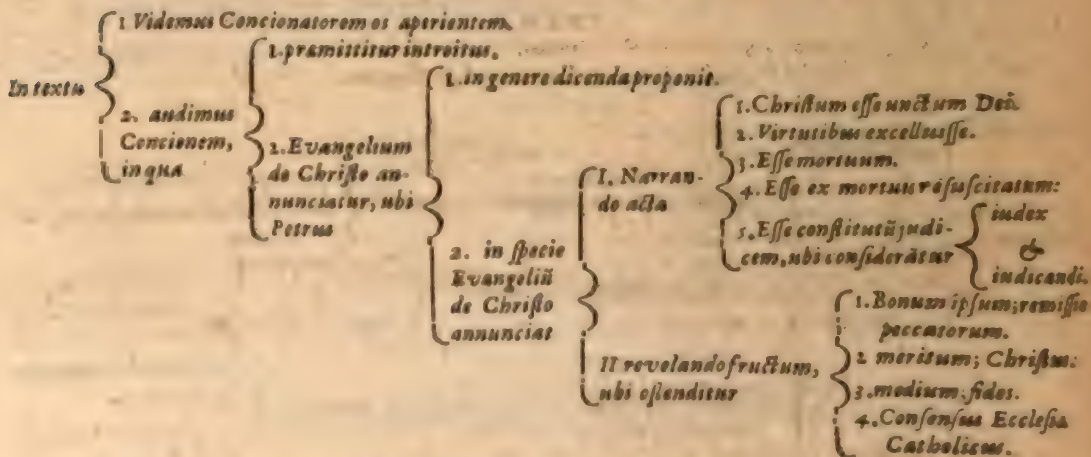 In textu
1 Videmus Concionatorem os aperientem.
2. audimus
Concionem,
in qua
1. præmittitur introitus.
2. Evangelium
de Christo an-
nunciatur, ubi
Petrus
1. in genere dicenda proponit.
2. in specie
Evangeliũ
de Christo
annunciat
I. Narran-
do acta
1. Christum esse unctum Dei.
2. Virtutibus excelluisse.
3. Esse mortuum.
4. Esse ex mortuis resuscitatum:
5. Esse constitutũ judi-
cem, ubi considerãtur
iudex
&
iudicandi.
II revelando fructum,
ubi ostenditur
1. Bonum ipsum; remissio
peccatorum.
2 meritum; Christus:
3. medium; fides.
4. Consensus Ecclesiæ
Catholicus.